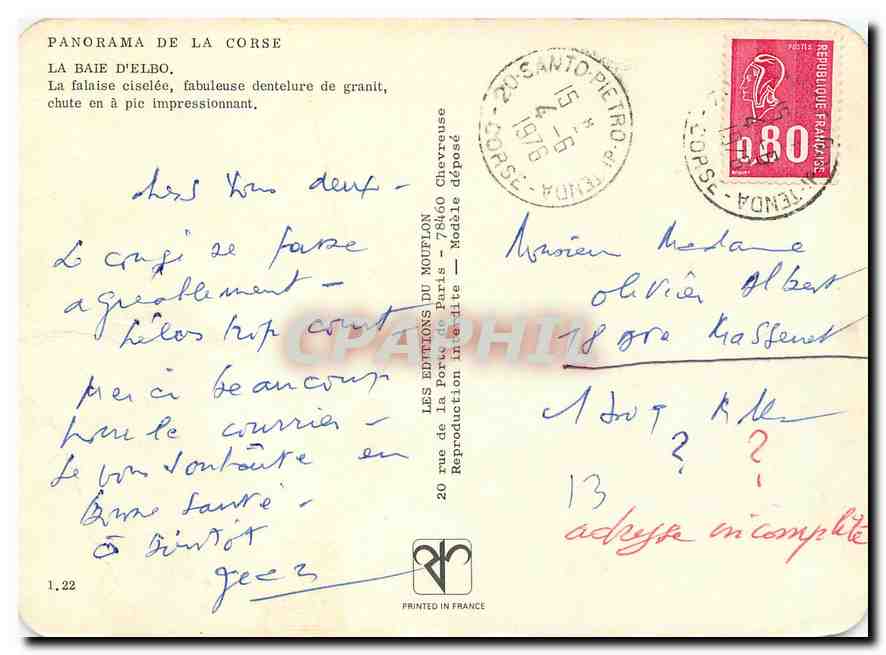 PANORAMA DE LA CORSE
LA BAIE D'ELBO.
La falaise ciselée, fabuleuse dentelure de granit,
chute en à pic impressionnant.
chers Vous deux -
Le congé se passe
agréablement -
hélas trop court -
Merci beaucoup
pour le courrier -
Je vous souhaite en
Bonne santé -
à Bientôt
Jean
1.22
LES EDITIONS DU MOUFLON
20 rue de la Porte de Paris - 78460 Chevreuse
Reproduction interdite — Modèle déposé
PRINTED IN FRANCE
20-SANTO-PIETRO-DI-TENDA - CORSE
15 * -6
4
1976
POSTES
REPUBLIQUE FRANÇAISE
0,80
DI-TENDA - CORSE
15
4 -6
1976
Monsieur Madame
Olivier Albert
18 rue Massenet
13
? ?
adresse incomplète
CPAPHIL